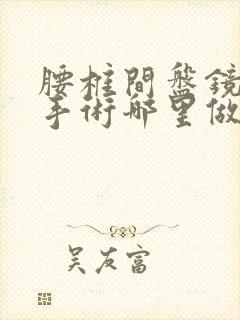 腰椎間盤鏡
手術哪里做
吴友富